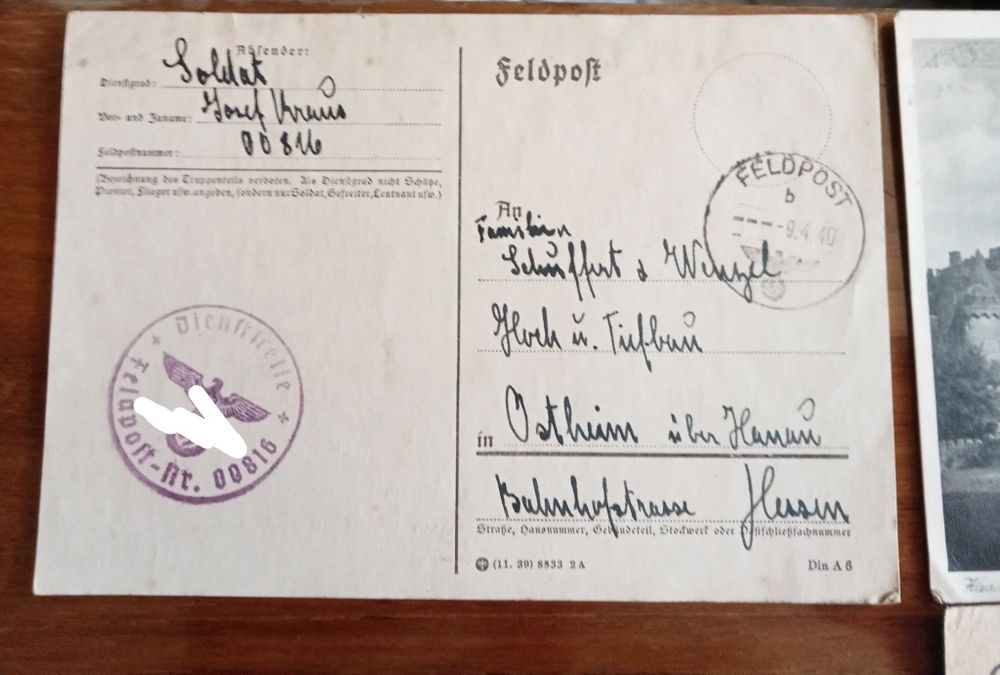 Absender:
Dienstgrad: Soldat
Vor- und Zuname: Josef Kraus
Feldpostnummer: 00816
(Bezeichnung des Truppenteils verboten. Als Dienstgrad nicht Schütze,
Pionier, Flieger usw. angeben, sondern nur Soldat, Gefreiter, Leutnant usw.)
Dienststelle
Feldpost-Nr. 00816
Feldpost
FELDPOST
b
-9.4.40
An
Familien
Schuffert & Wenzel
Hoch u. Tiefbau
in Ostheim über Hanau
Bahnhofstrasse Hessen
Straße, Hausnummer, Gebäudeteil, Stockwerk oder Postschließfachnummer
(11. 39) 8833 2 A
Din A 6